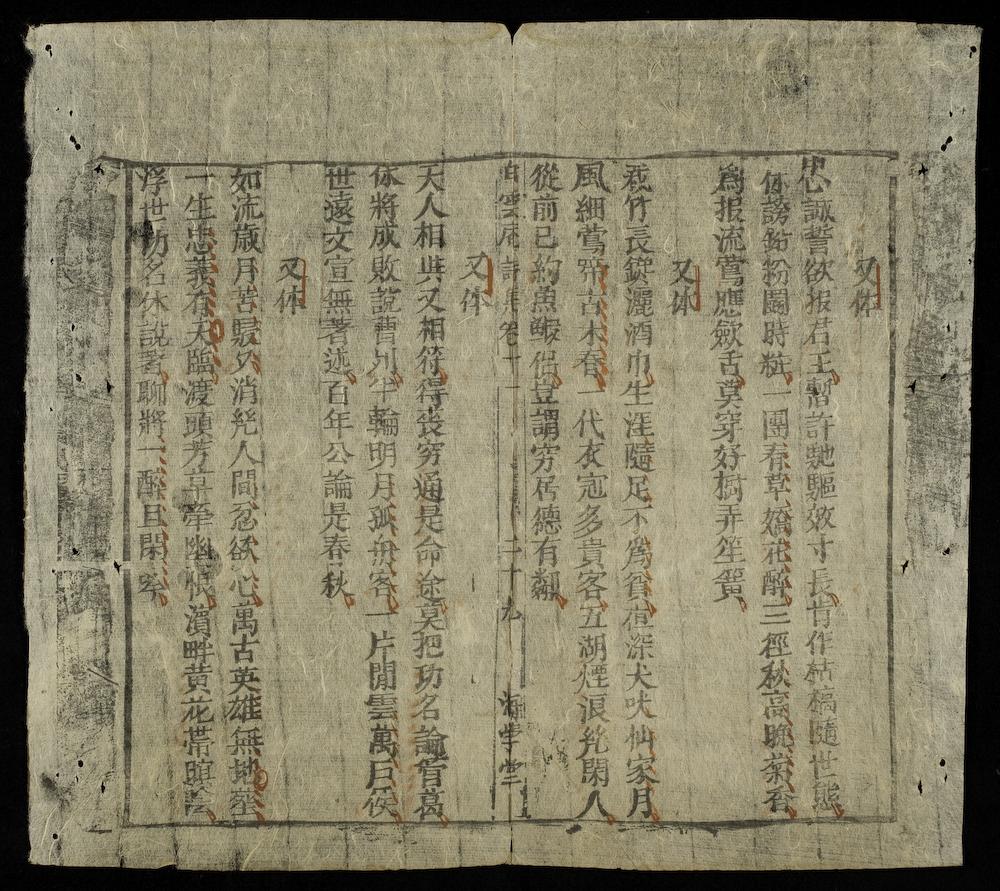 又体
忠誠誓欲报君王暫許馳驅效寸長肯作枯槁隨世態
休誇鉛粉鬪時粧一團春草嬌花醉三徑秋高晚菊香
爲报流鶯應歛舌莫穿好樹弄笙簧
又体
栽竹長灑酒巾生涯隨足不爲貧深犬吠仙家月
風細鶯啼古木春一代衣冠多貴客五湖煙浪㡬閑人
從前已約魚鰕侶豈謂穷居德有鄰
白雲庵詩集卷一 二十九 海学堂
又体
天人相與又相符得丧穷通是命途莫把功名論管葛
休將成敗說曹刘半輪明月孤舟客一片閒雲萬户侯
世遠文宣無著述百年公論是春秋
又体
如流歲月苦消㡬人間忍欲心萬古英雄無地塟
一生忠義有天臨渡頭芳草牽幽恨濱畔黄花帶暝陰
浮世功名休說著聊將一醉且閑吟